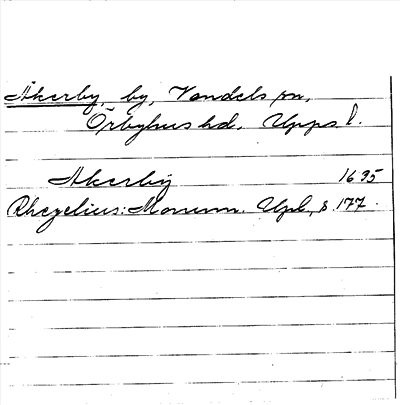 Åkerby, by, Vendels sn,
Örbyhus hd, Upps l.
Åkerby 1635
Rhezelius: Monum. Upl, s. 177.